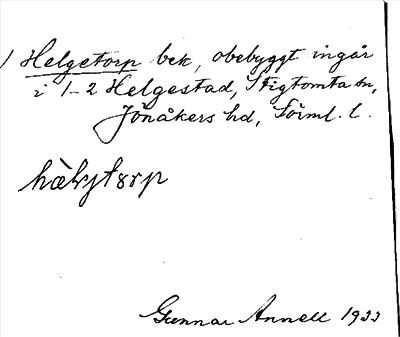 1 Helgetorp bek, obebyggt ingår
i 1-2 Helgestad, Stigtomta sn,
Jönåkers hd, Sörml. l.
Gunnar Annell 1933